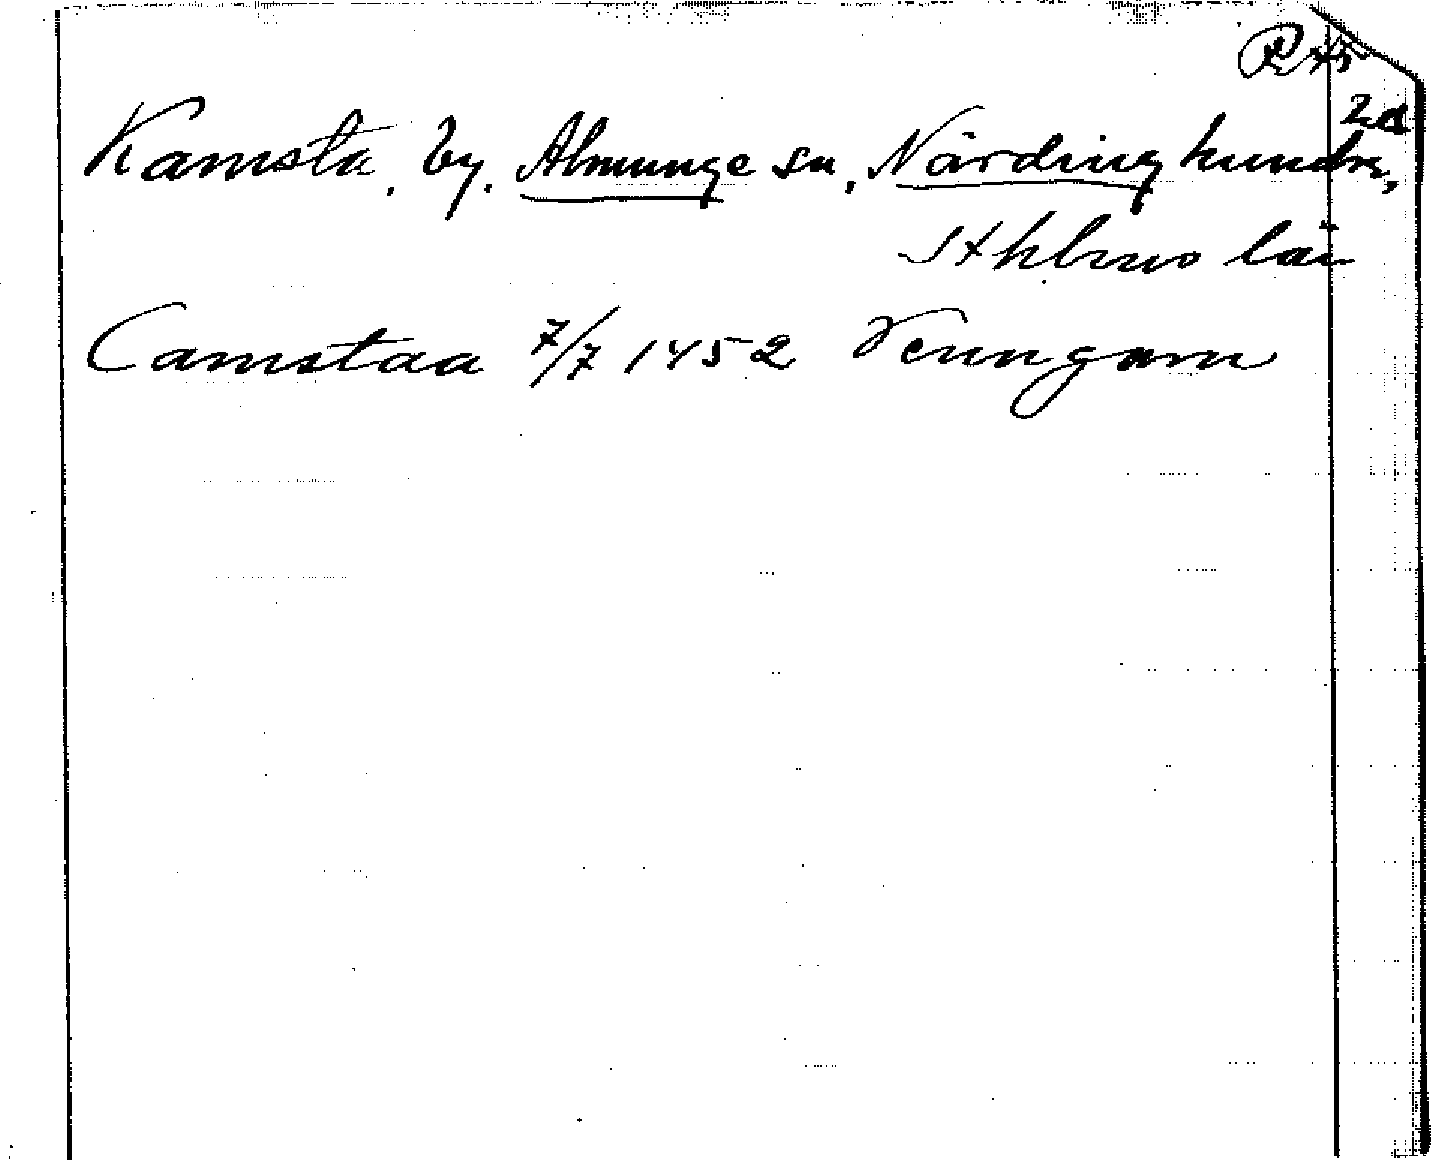 2a
Kamsta, by, Almunge sn, Närdinghundra,
Sthlms län
Camstaa 7/7 1452 Venngarn